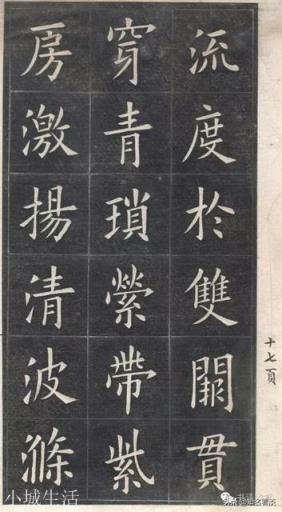 十七頁
流度於雙闕貫
穿青瑣縈帶紫
房激揚清波滌
小城生活